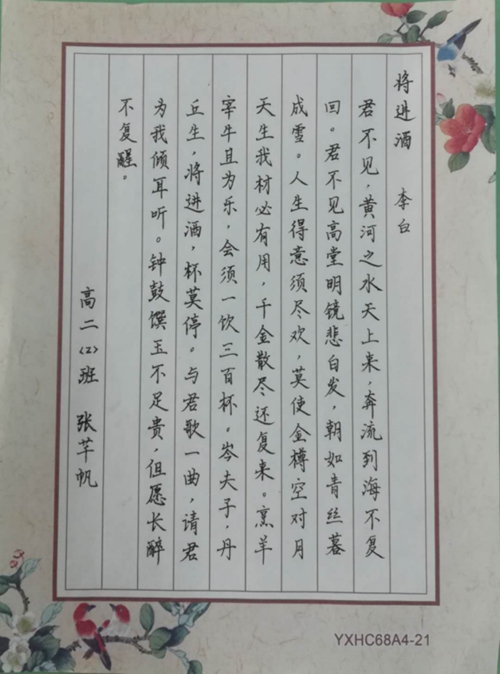 将进酒 李白
君不见，黄河之水天上来，奔流到海不复
回。君不见高堂明镜悲白发，朝如青丝暮
成雪。人生得意须尽欢，莫使金樽空对月
天生我材必有用，千金散尽还复来。烹羊
宰牛且为乐，会须一饮三百杯。岑夫子，丹
丘生，将进酒，杯莫停。与君歌一曲，请君
为我倾耳听。钟鼓馔玉不足贵，但愿长醉
不复醒。
高二（2）班 张芊帆
YXHC68A4-21